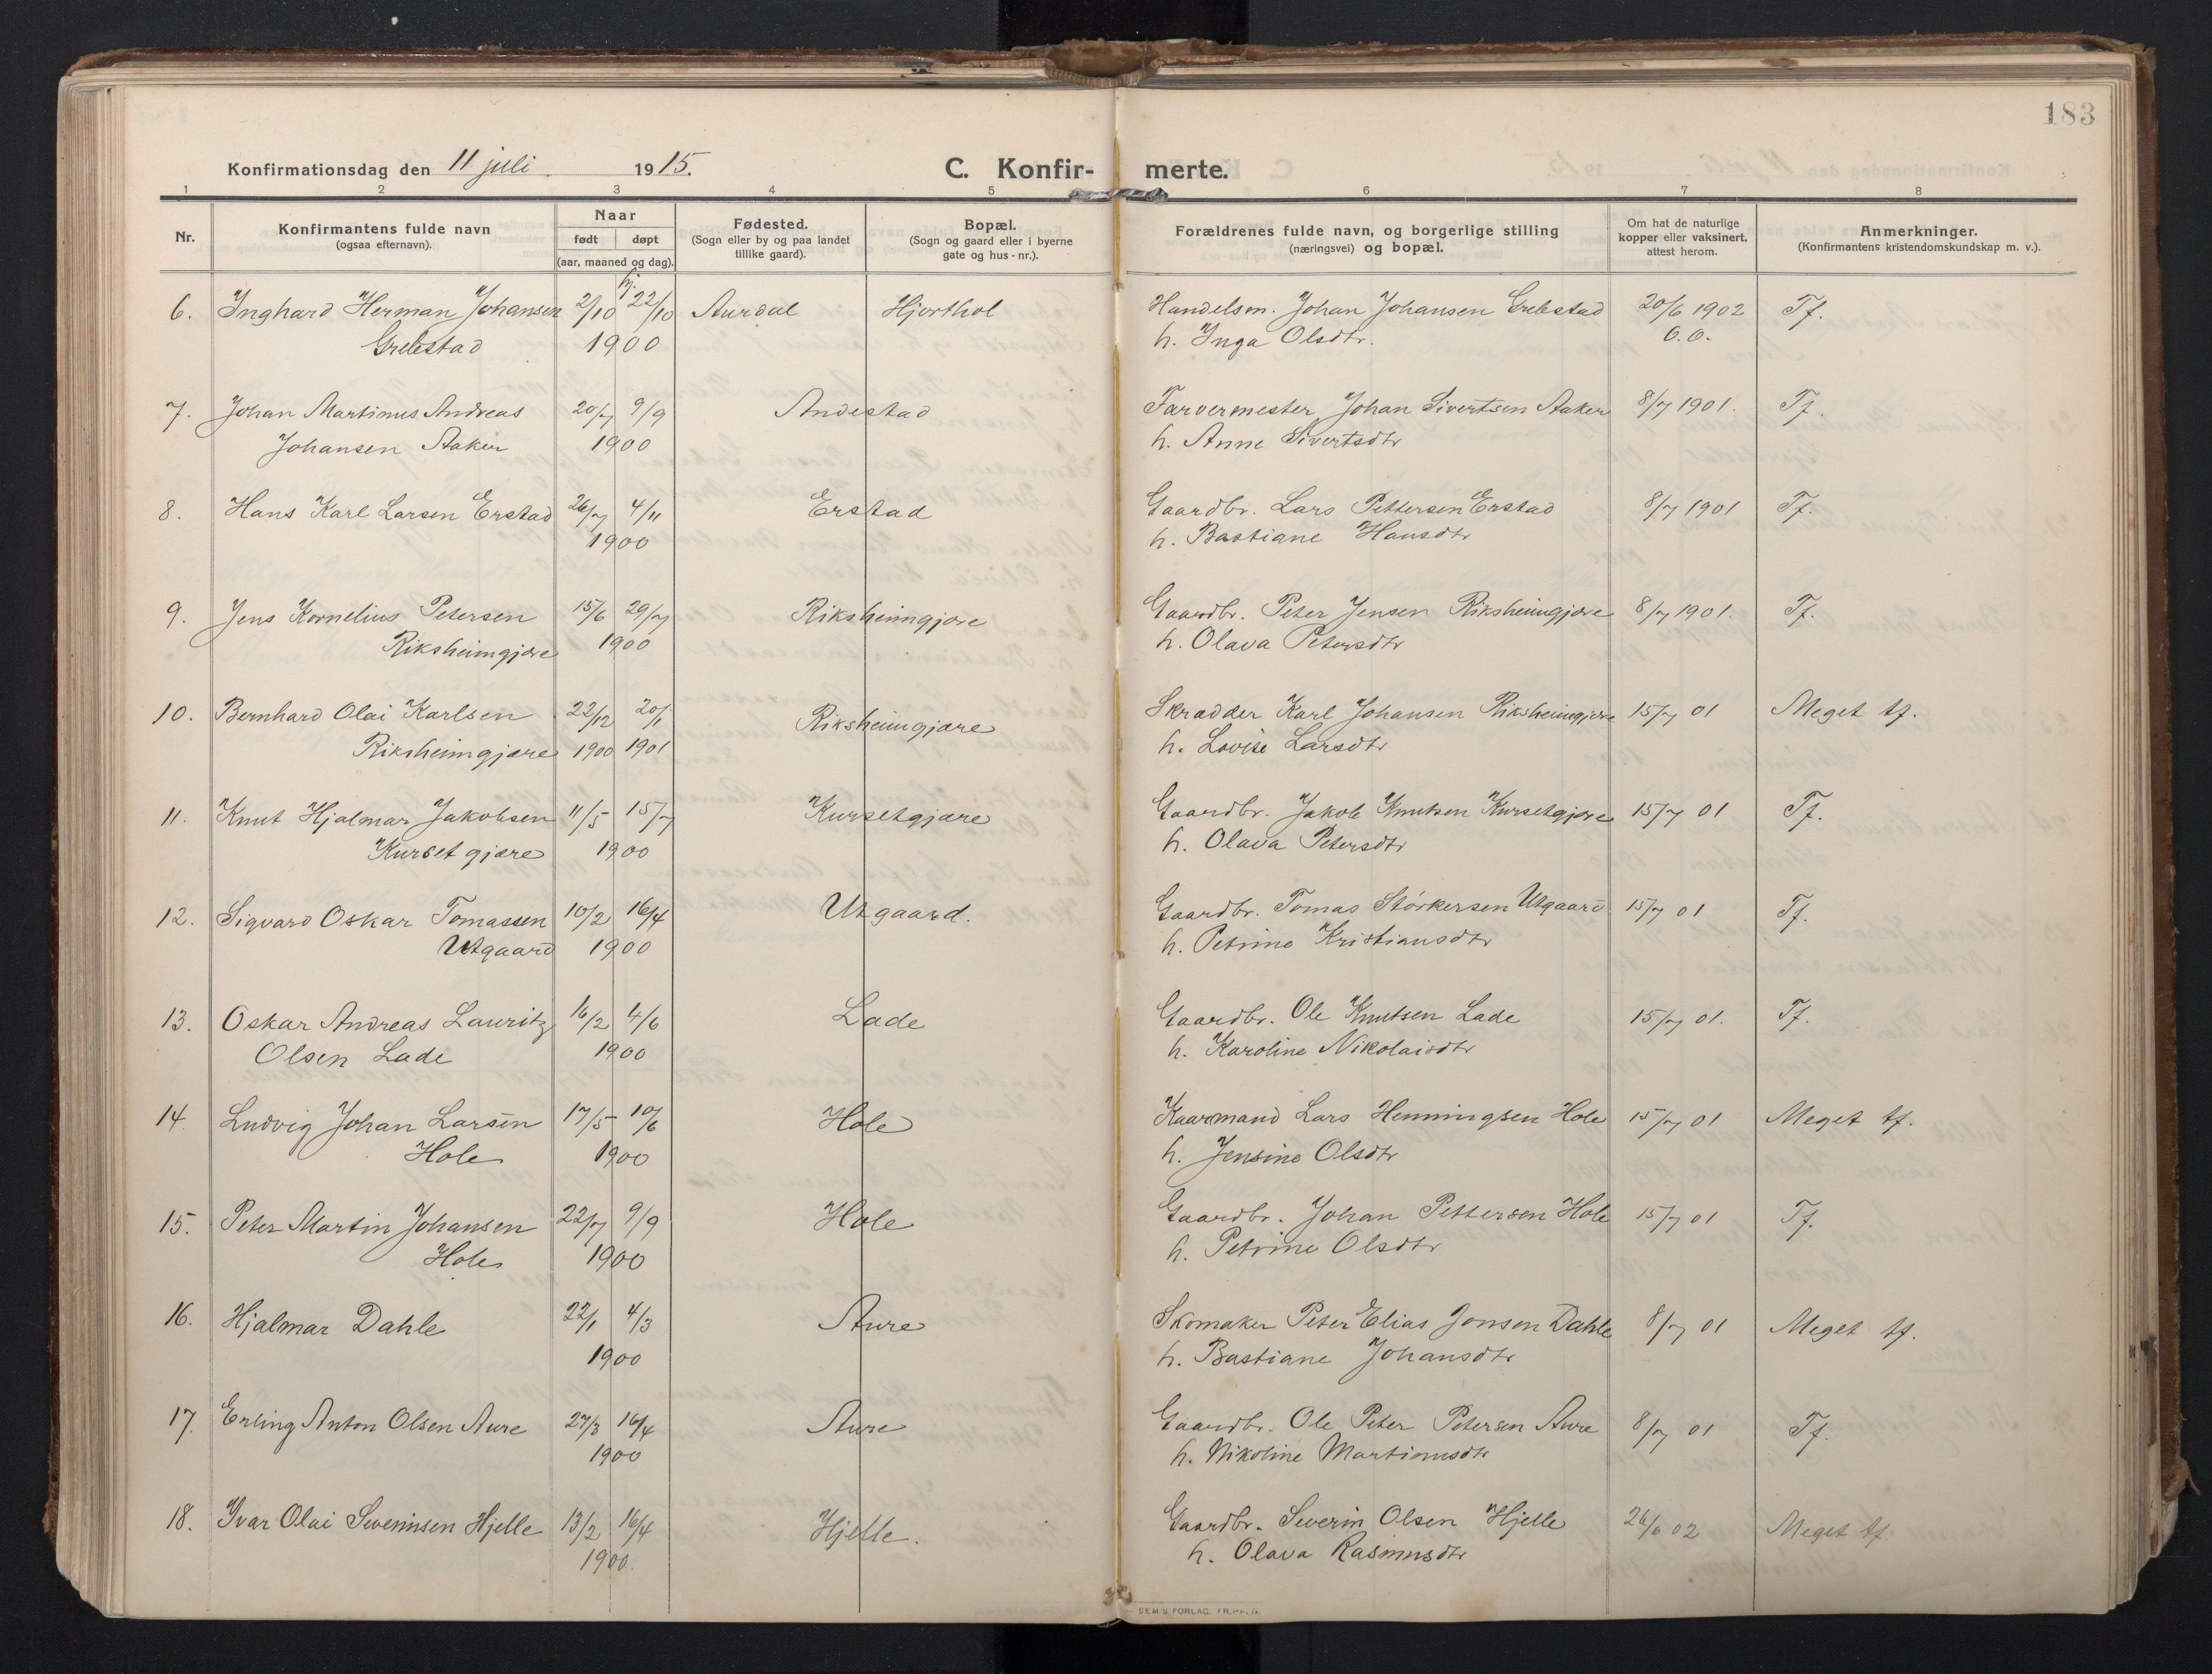 183
Konfirmationsdag den 11 juli 1915.
C. Konfir- merte.
1 2 3 4 5 6 7 8
Nr.
Konfirmantens fulde navn
(ogsaa efternavn).
Naar
født døpt
(aar, maaned og dag).
Fødested.
(Sogn eller by og paa landet
tillike gaard).
Bopæl.
(Sogn og gaard eller i byerne
gate og hus-nr.).
Forældrenes fulde navn, og borgerlige stilling
(næringsvei) og bopæl.
Om hat de naturlige
kopper eller vaksinert,
attest herom.
Anmerkninger.
(Konfirmantens kristendomskundskap m. v.).
hj.
6. Inghard Herman Johansen 2/10 22/10 Aurdal Hjorthol Handelsm. Johan Johansen Grebstad 20/6 1902 Tf.
Grebstad 1900 h. Inga Olsdtr. O.O.
7. Johan Martinus Andreas 20/7 9/9 Andestad Farvermester Johan Sivertsen Aaker 8/7 1901. Tf.
Johansen Aaker 1900 h. Anne Sivertsdtr
8. Hans Karl Larsen Erstad 26/7 4/11 Erstad Gaardbr. Lars Pettersen Erstad 8/7 1901 Tf.
1900 h. Bastiane Hansdtr
9. Jens Kornelius Petersen 15/6 29/7 Riksheimgjære Gaardbr. Peter Jensen Riksheimgjære 8/7 1901. Tf.
Riksheimgjære 1900 h. Olava Petersdtr
10. Bernhard Olai Karlsen 22/12 20/1 Riksheimgjære Skrædder Karl Johansen Riksheimgjære 15/7 01 Meget tf.
Riksheimgjære 1900 1901 h. Lovise Larsdtr
11. Knut Hjalmar Jakobsen 11/5 15/7 Kursetgjære Gaardbr. Jakob Knutsen Kursetgjære 15/7 01 Tf.
Kursetgjære 1900 h. Olava Petersdtr
12. Sigvard Oskar Tomassen 10/2 16/4 Utgaard. Gaardbr. Tomas Störkersen Utgaard 15/7 01 Tf.
Utgaard 1900 h. Petrine Kristiansdtr
13. Oskar Andreas Lauritz 16/2 4/6 Lade Gaardbr. Ole Knutsen Lade 15/7 01. Tf.
Olsen Lade 1900 h. Karoline Nikolaisdtr
14. Ludvig Johan Larsen 17/5 10/6 Hole Kaarmand Lars Henningsen Hole 15/7 01 Meget tf.
Hole 1900 h. Jensine Olsdtr
15. Peter Martin Johansen 22/7 9/9 Hole Gaardbr. Johan Pettersen Hole 15/7 01 Tf.
Hole 1900 h. Petrine Olsdtr
16. Hjalmar Dahle 22/1 4/3 Aure Skomaker Peter Elias Jonsen Dahle 8/7 01 Meget tf.
1900 h. Bastiane Johansdtr
17. Erling Anton Olsen Aure 27/3 16/4 Aure Gaardbr. Ole Peter Petersen Aure 8/7 01 Tf.
1900 h. Nikoline Martinusdtr
18. Ivar Olai Severinsen Hjelle 13/2 16/4 Hjelle. Gaardbr. Severin Olsen Hjelle 26/6 02 Meget tf.
1900. h. Olava Rasmusdtr
SEM'S FORLAG, FR.HALD.